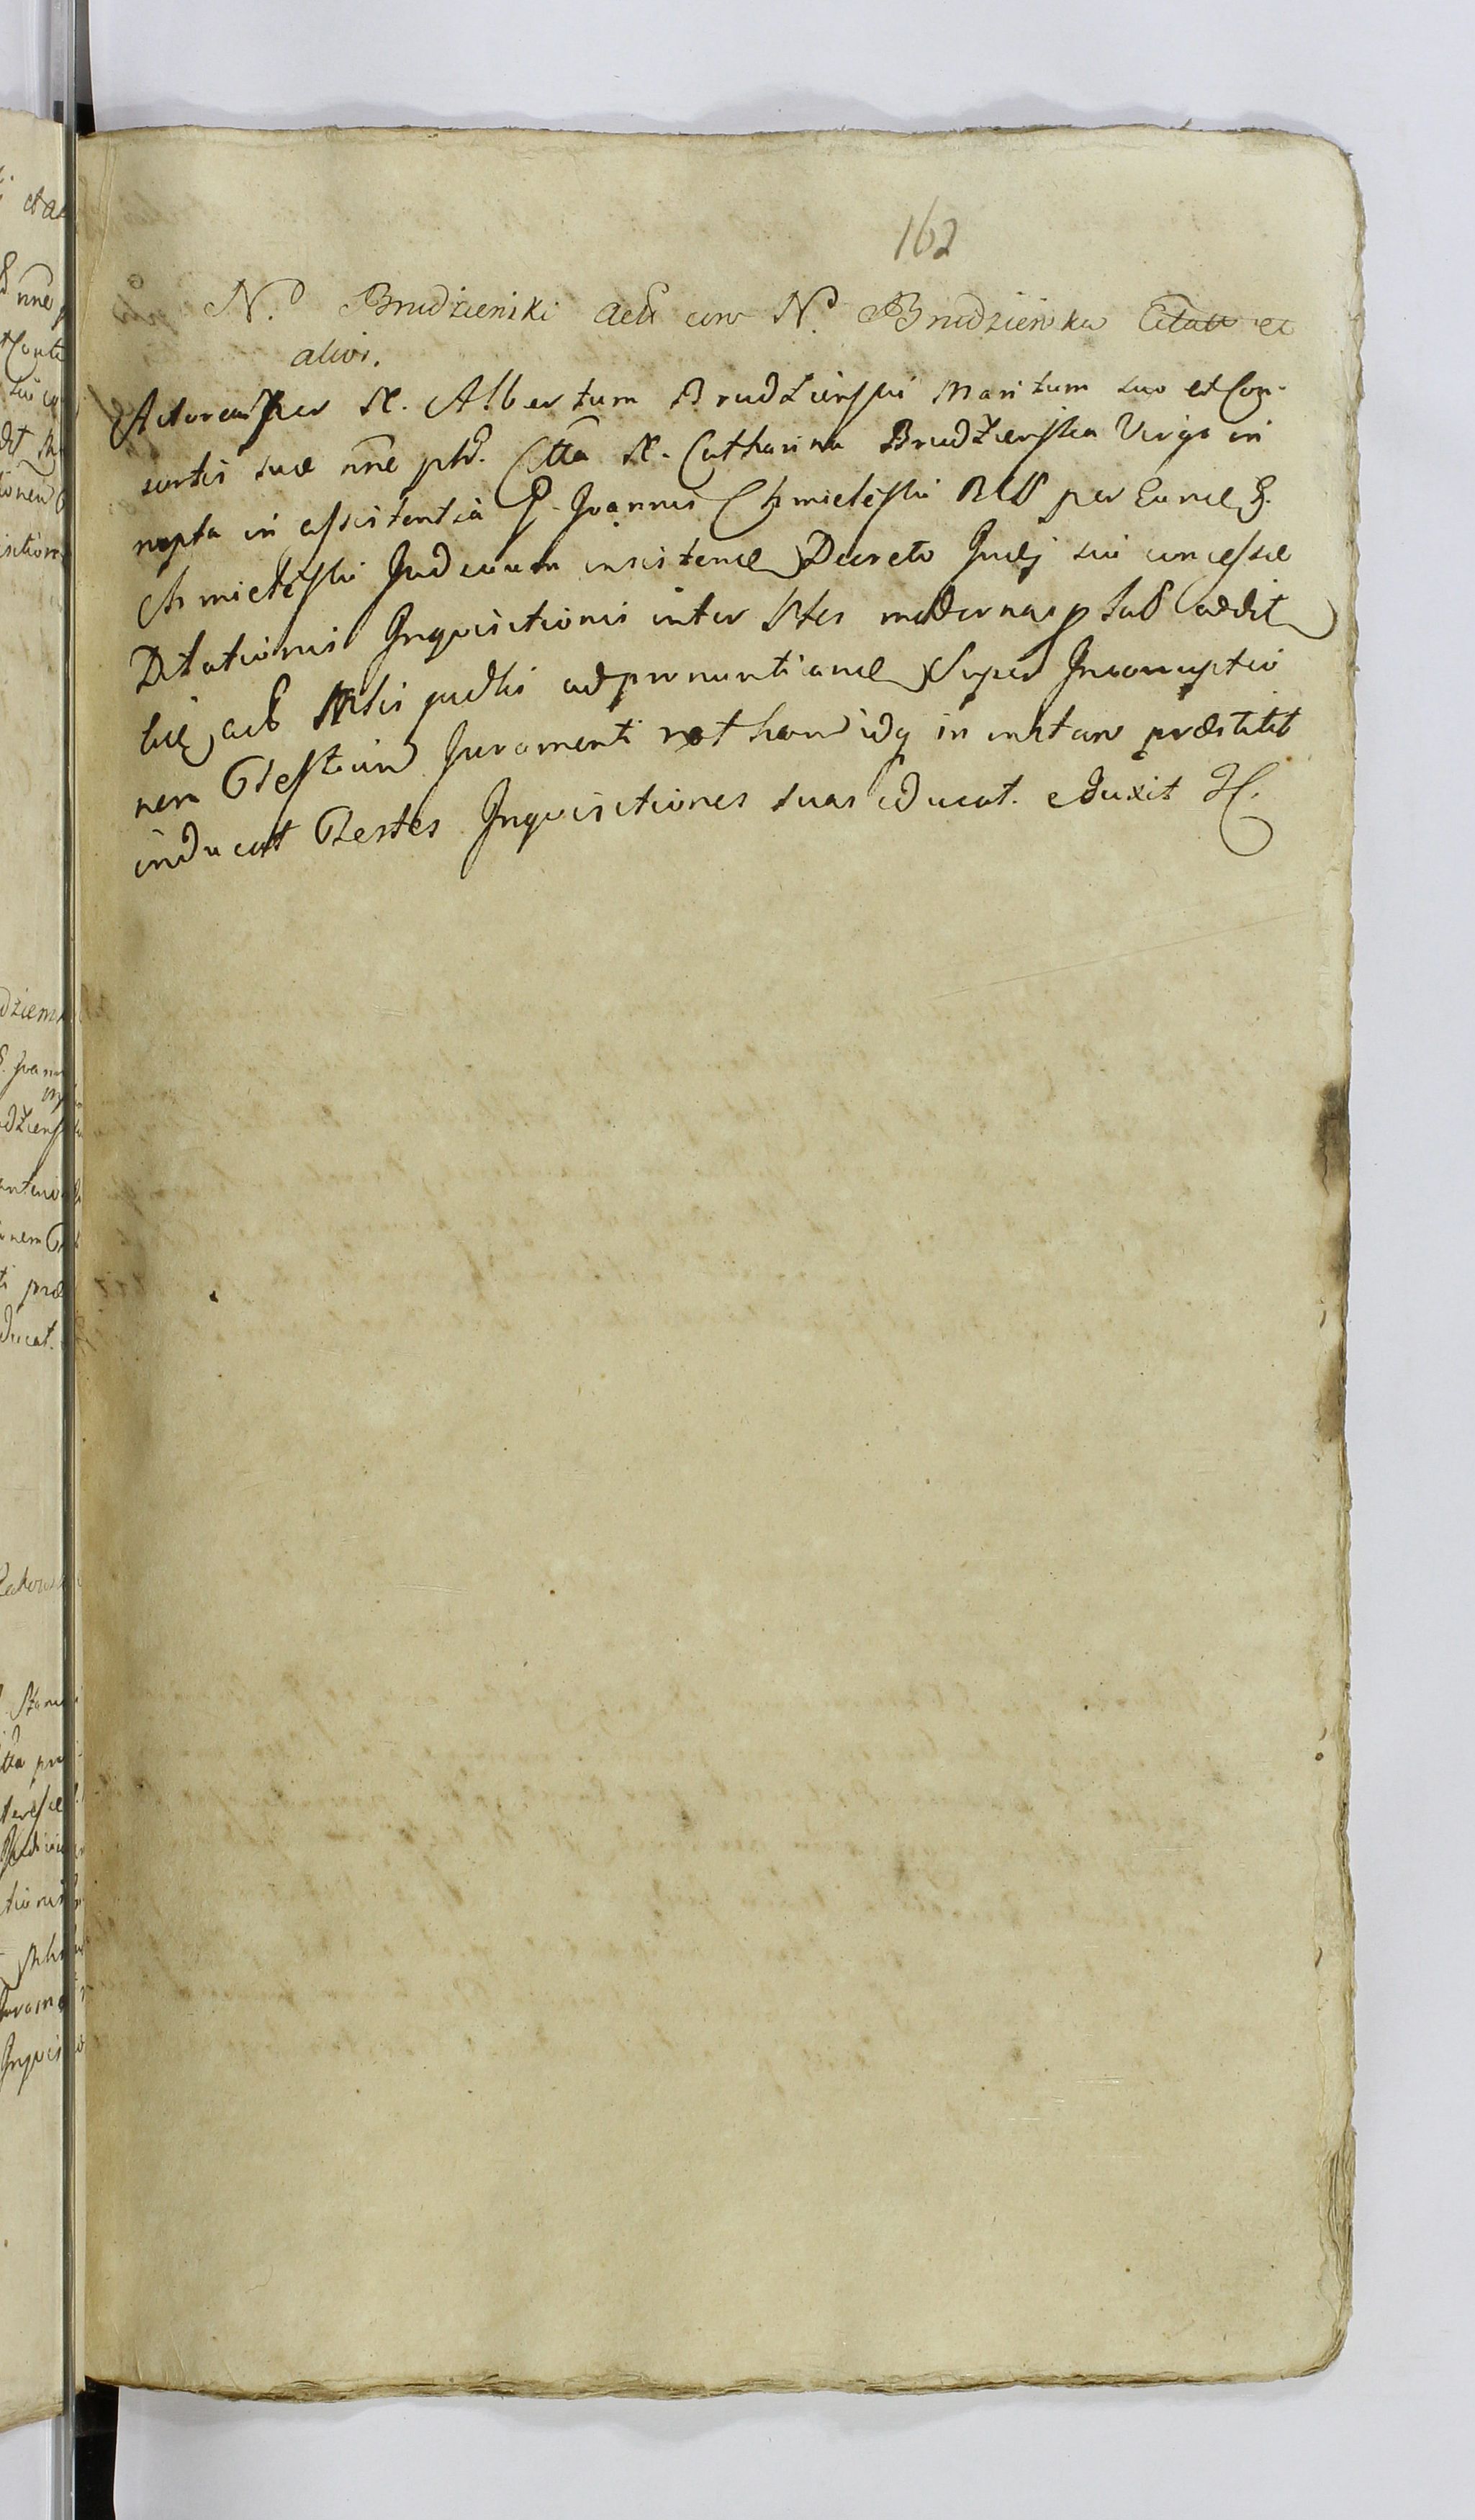 162
N. Brudzienski Actor cum N. Brudzienska Citata et
alior.
Actorea per N. Albertum Brudzienski Maritum suo et Con-
sortis suæ nñe pħt. Ctta N. Catharina Brudzienska Virgo in
nupta in assistentia G. Joannis Chmieleski per Eund G.
Chmieleski Judicium insistend Decreto Judij sui concessæ
Dilationis Inquisitionis inter Ptes modernas addit
ad pronuntiand Super Incorruptio
nem Testium Juramenti idq in instan præstitit
inducat Testes Inquisitiones suas educat. eduxit